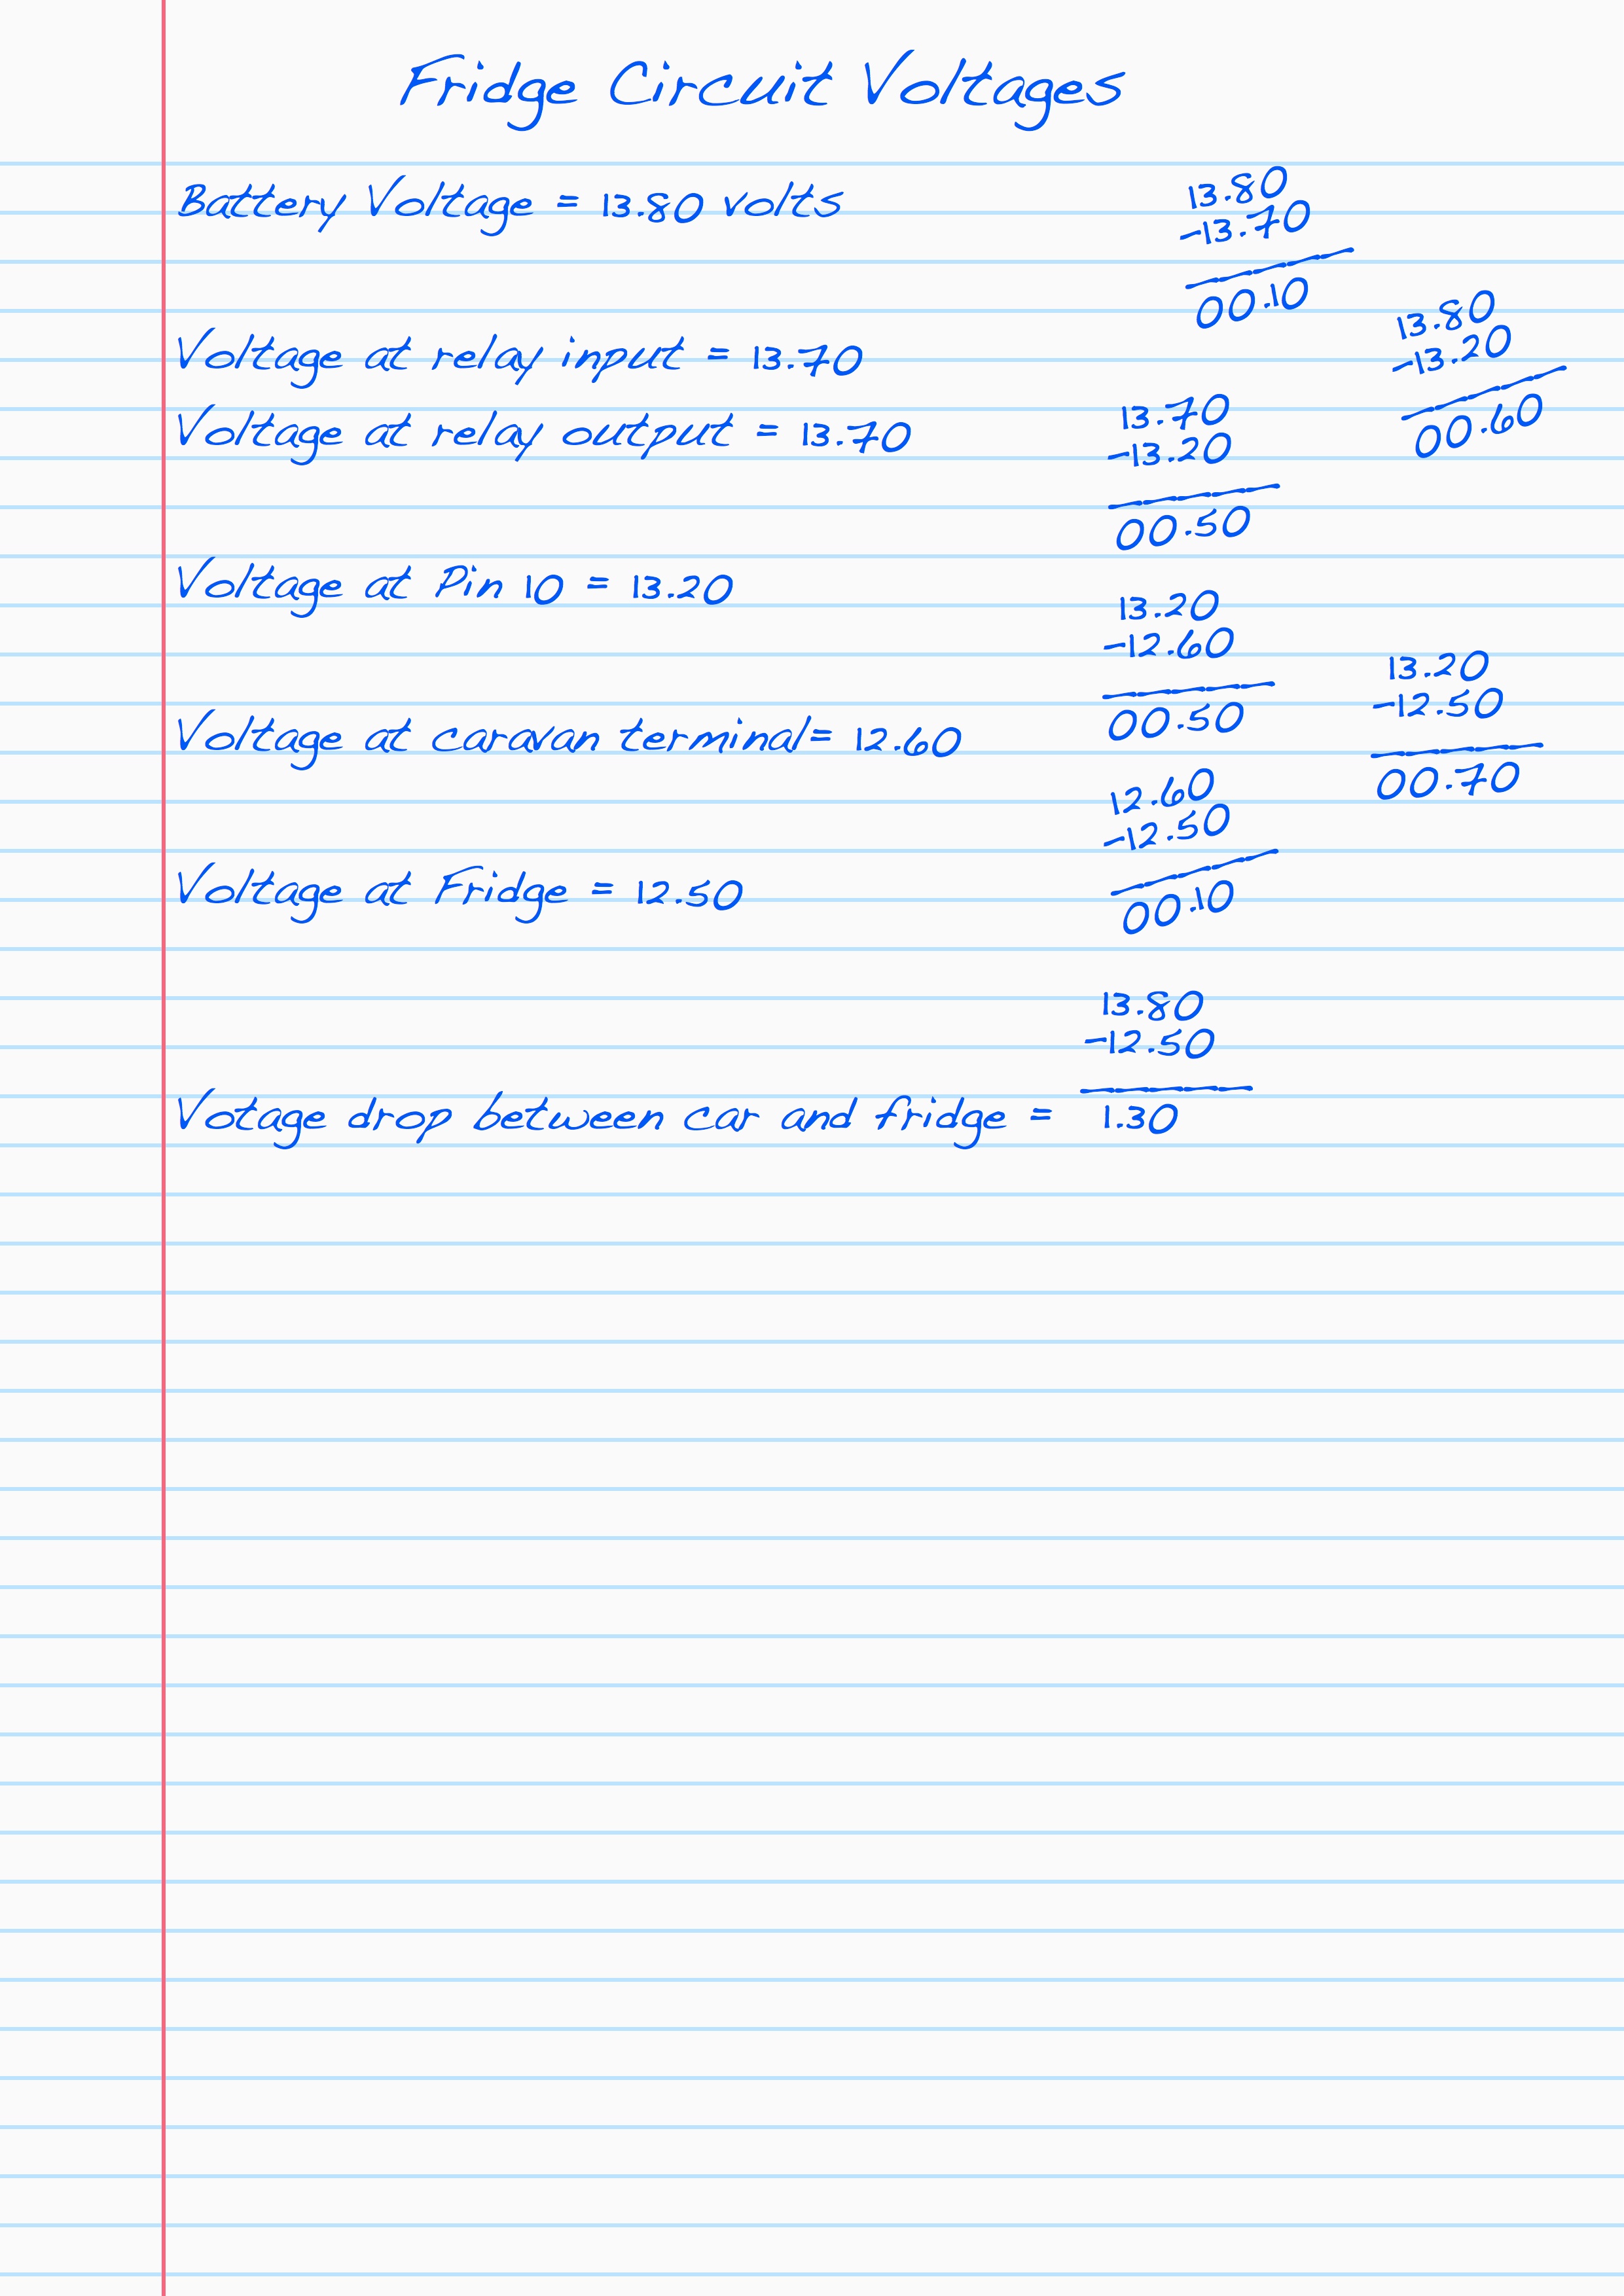 Fridge Circuit Voltages
Battery Voltage = 13.80 volts
13.80
-13.70
00.10
13.80
-13.20
00.60
Voltage at relay input = 13.70
Voltage at relay output = 13.70
13.70
-13.20
00.50
Voltage at Pin 10 = 13.20
13.20
-12.60
00.50
13.20
-12.50
00.70
Voltage at caravan terminal= 12.60
12.60
-12.50
00.10
Voltage at Fridge = 12.50
13.80
-12.50
Votage drop between car and fridge = 1.30